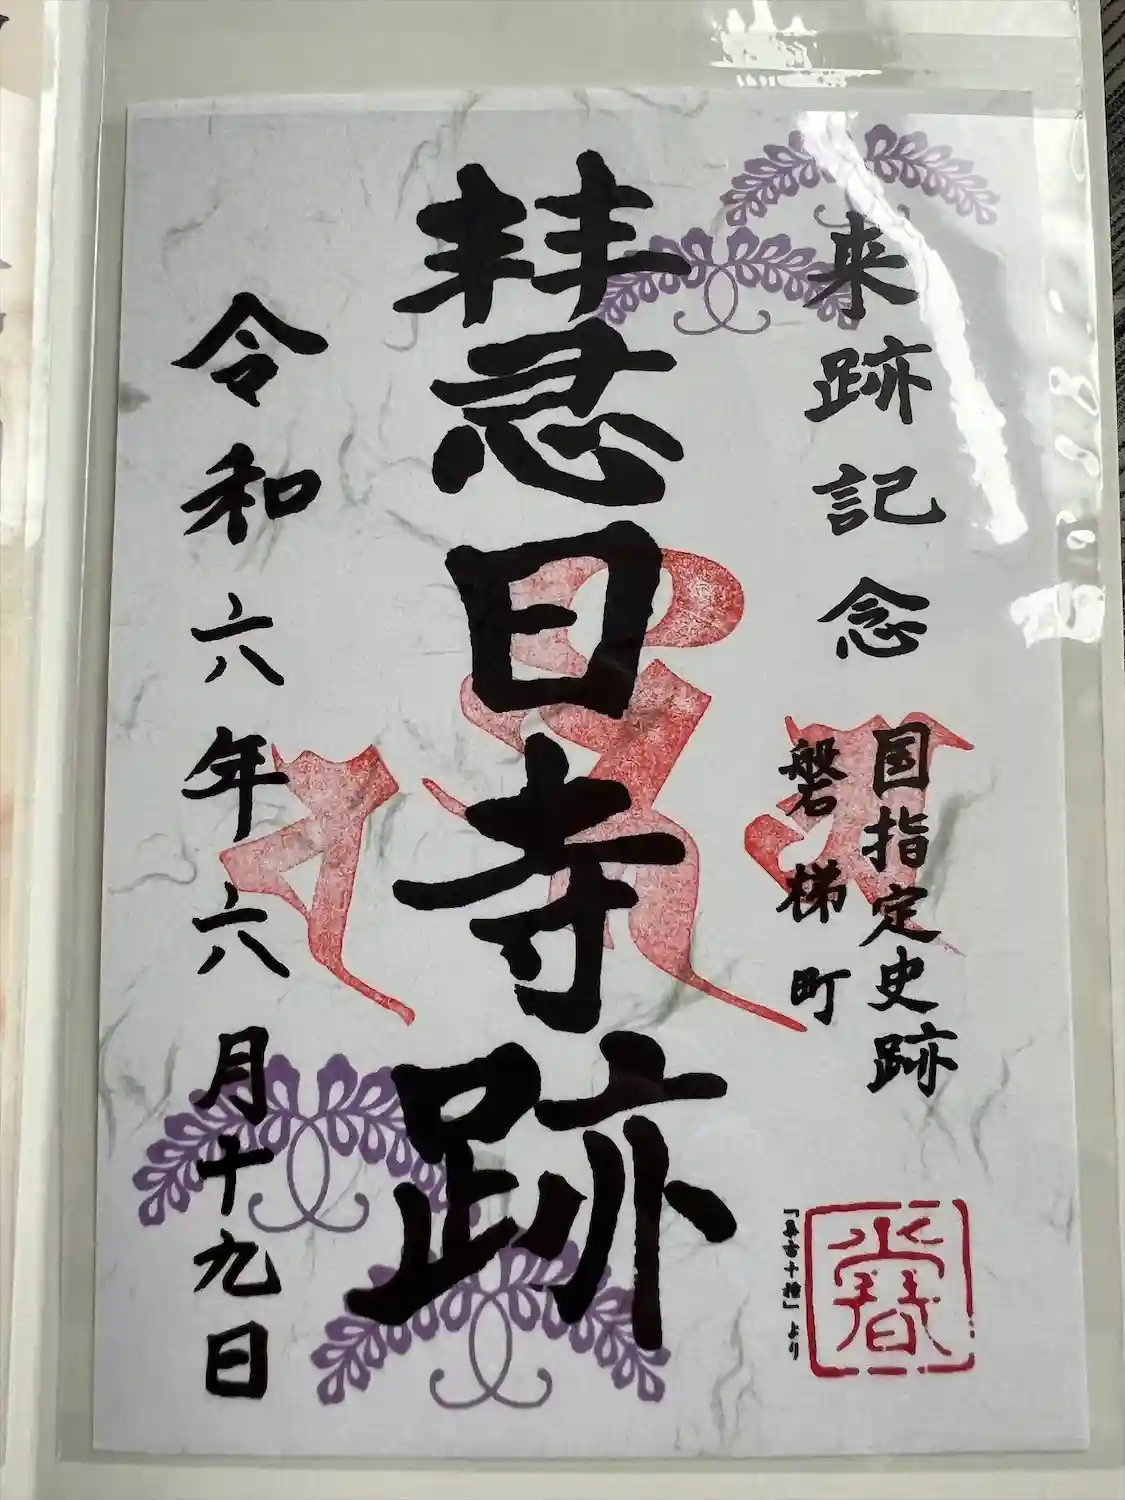 来跡記念
国指定史跡
磐梯町
慧日寺跡
令和六年六月十九日
『集古十種』より